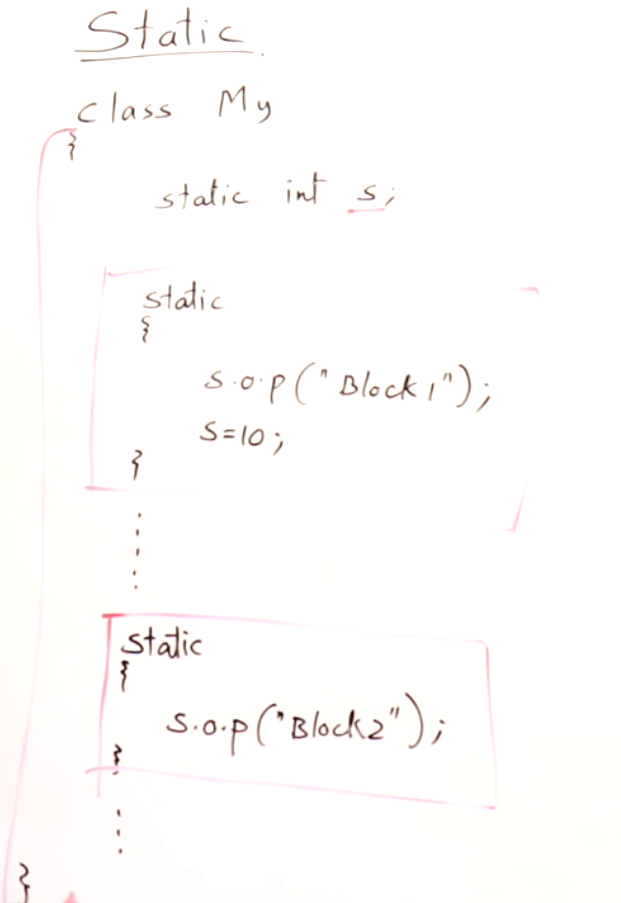 Static
class My
{
static int s;
static
{
s.o.p("Block1");
s=10;
}
static
{
s.o.p("Block2");
}
}